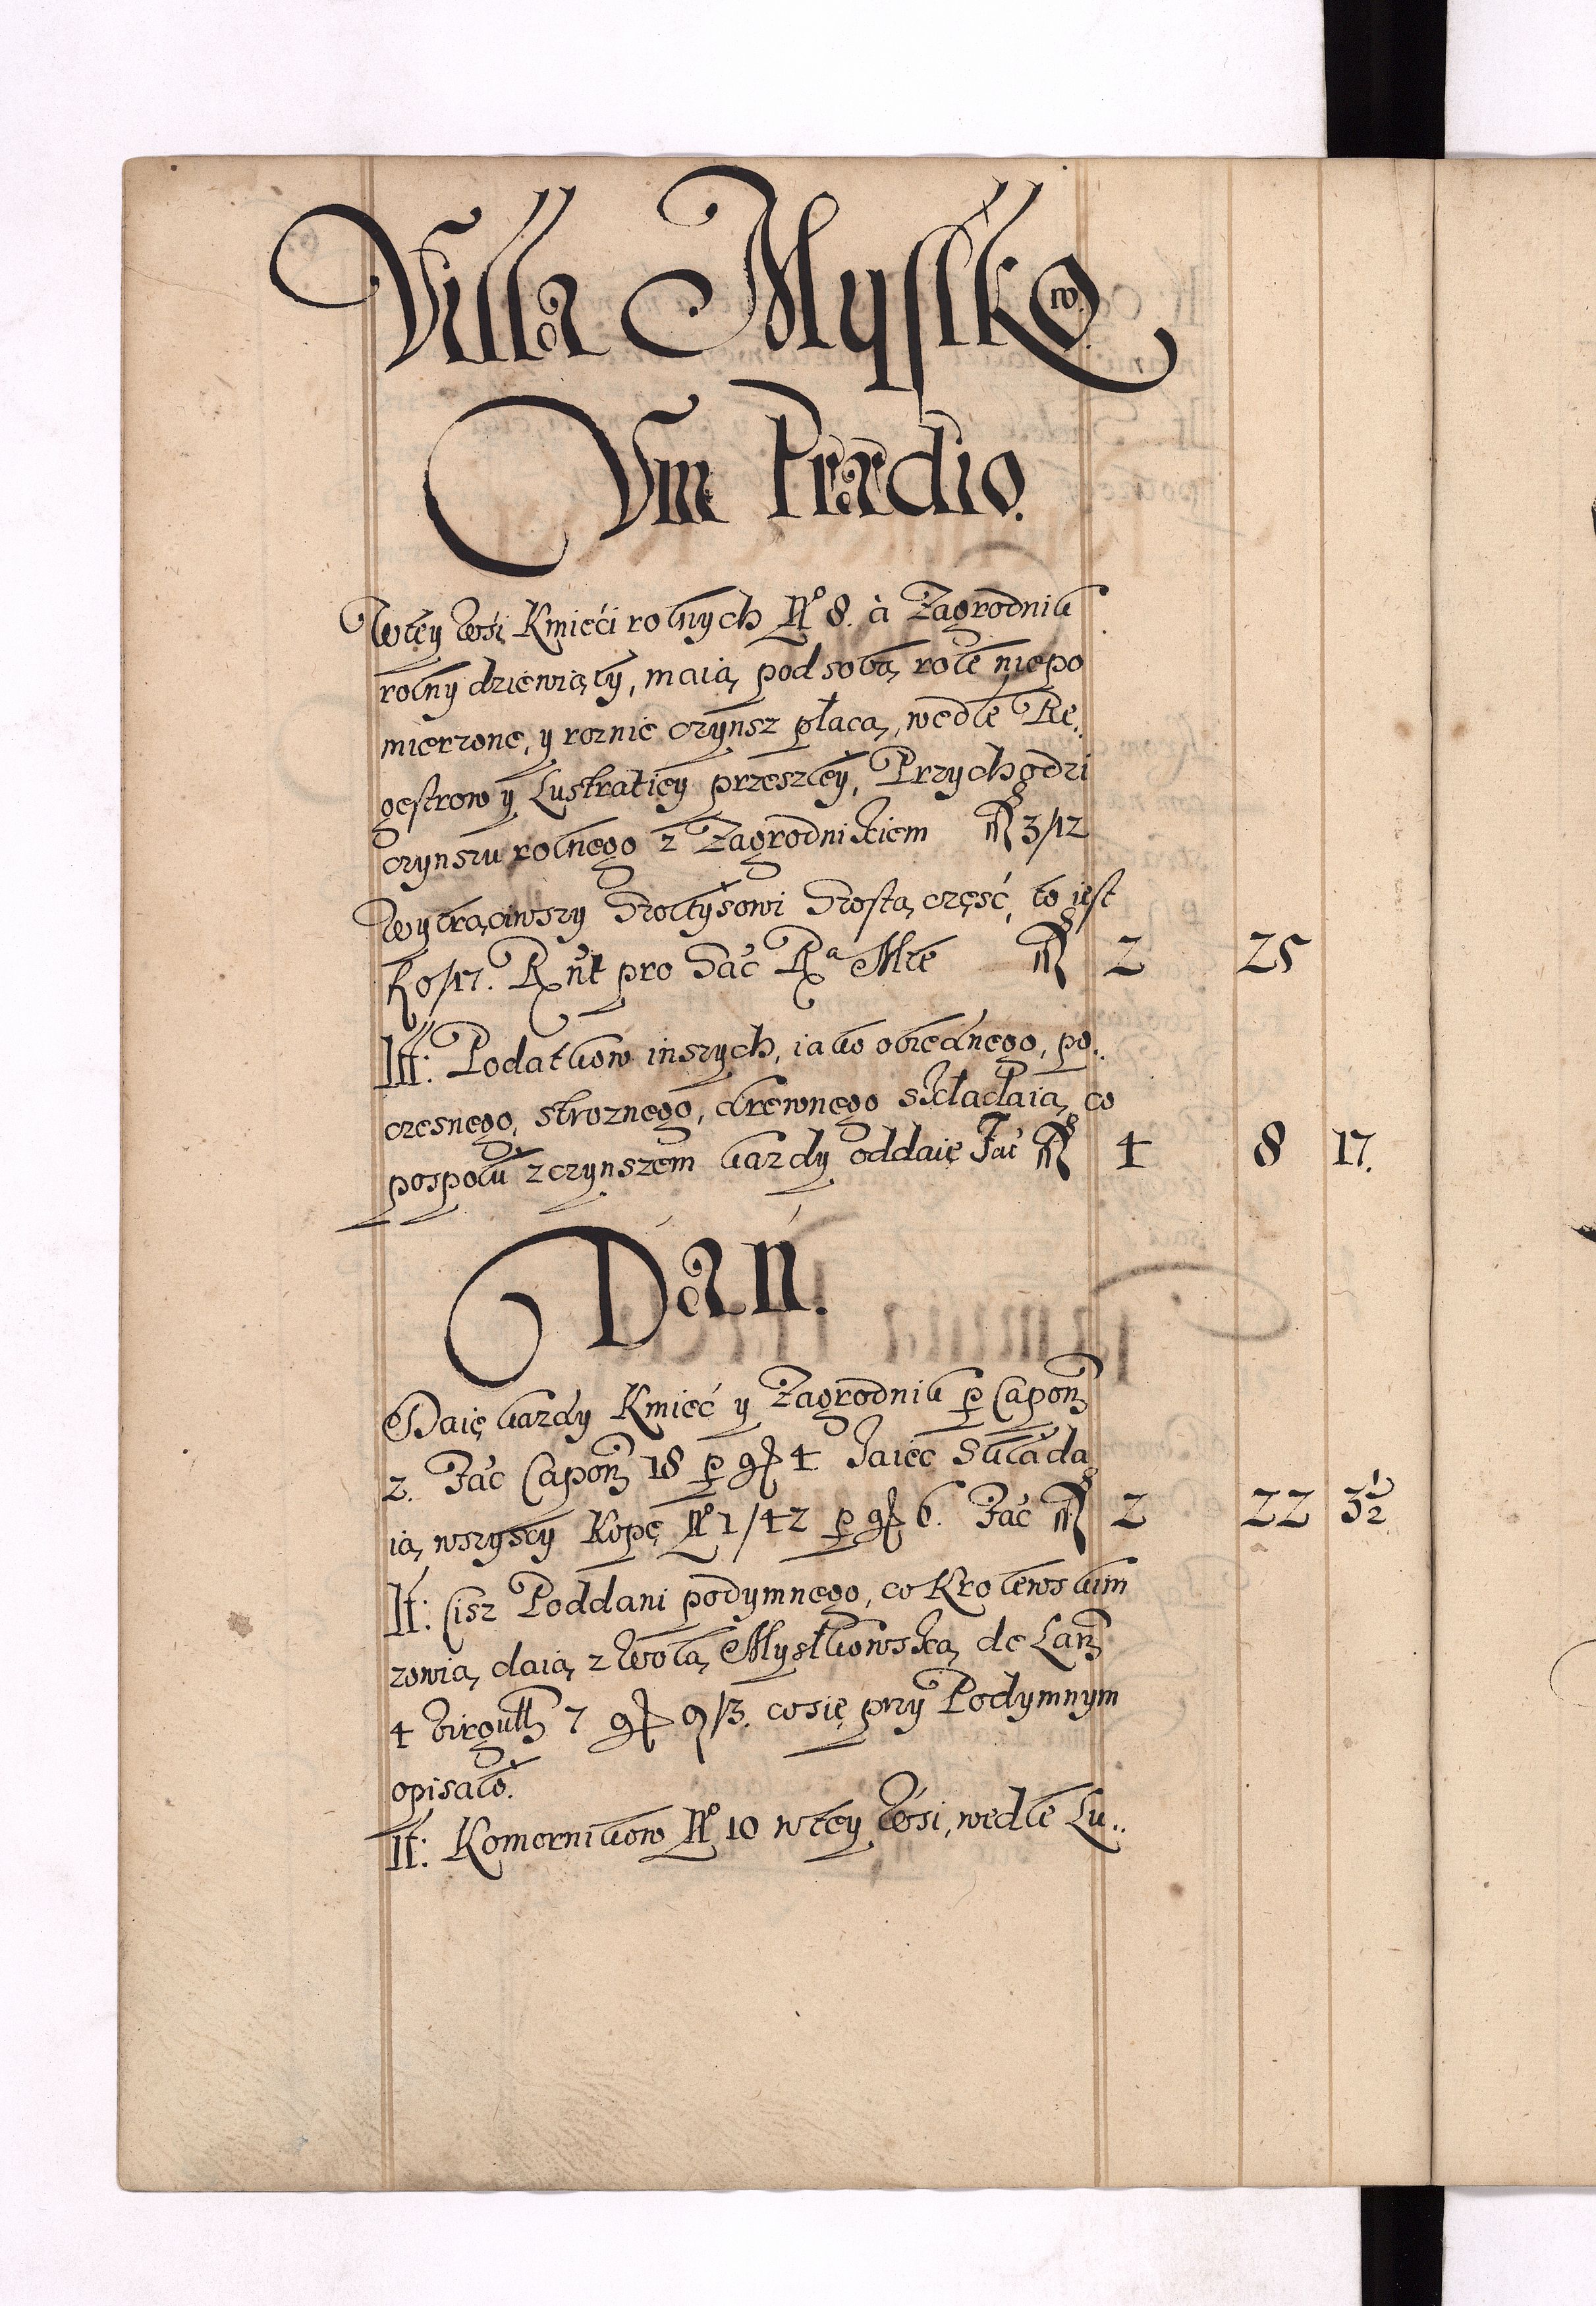 Villa Mysłkow
Cum Praedio.
Wtey wsi Kmieći rolnych N° 8. à Zagrodnik
rolny dziewiąty, maią pod sobą role niepo
mierzone, y roznie czynsz płacą, wedle Re..
gestrow y Lustratiey przeszley, Przychodzi
czynszu rolnego z Zagrodnikiem 3/12
Wytrąciwszy Szołtysowi szostą część, to jest
0/17. Rnt pro Sac Ra Mte 2 25
Itt: Podatkow inszych, iako obiednego, po..
czesnego, stroznego, drewnego składaią co
pospołu z czynszem kazdy oddaie Fac 4 8 17.
Dań.
Daię kazdy Kmieć y Zagrodnik p Capon
2. Fac Capon 18 p g 4. Jaiec składa
ią wszyscy Kopę N° 1/42 p g 6. Fac 2 22 3 1/2
It: Cisz Poddani podymnego, co Krolewskim
zowią daią z Wolą Mysłkowską de Lan
4 Virgult 7 g 9/3. cosię przy Podymnym
opisało.
It: Kornornikow N° 10 wtey wsi, wedle Lu..